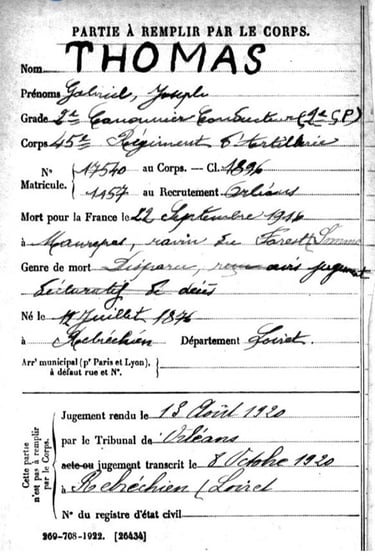 PARTIE À REMPLIR PAR LE CORPS.
Nom THOMAS
Prénoms Gabriel, Joseph
Grade 2e Canonnier Conducteur
Corps 45e Régiment d'Artillerie
N° Matricule. 17540 au Corps. — Cl. 1896
1157 au Recrutement Orléans
Mort pour la France le 22 Septembre 1916
à Maurepas, ravin du Forest Somme
Genre de mort Disparu, avis jugement
déclaratif de décès
Né le Juillet 1876
à Rebréchien Département Loiret
Arrt municipal (pr Paris et Lyon),
à défaut rue et N°.
Cette partie n'est pas à remplir par le Corps.
Jugement rendu le 13 Août 1920
par le Tribunal de Orléans
acte ou jugement transcrit le 8 Octobre 1920
à Rebréchien (Loiret
N° du registre d'état civil
269-708-1922. [26434]